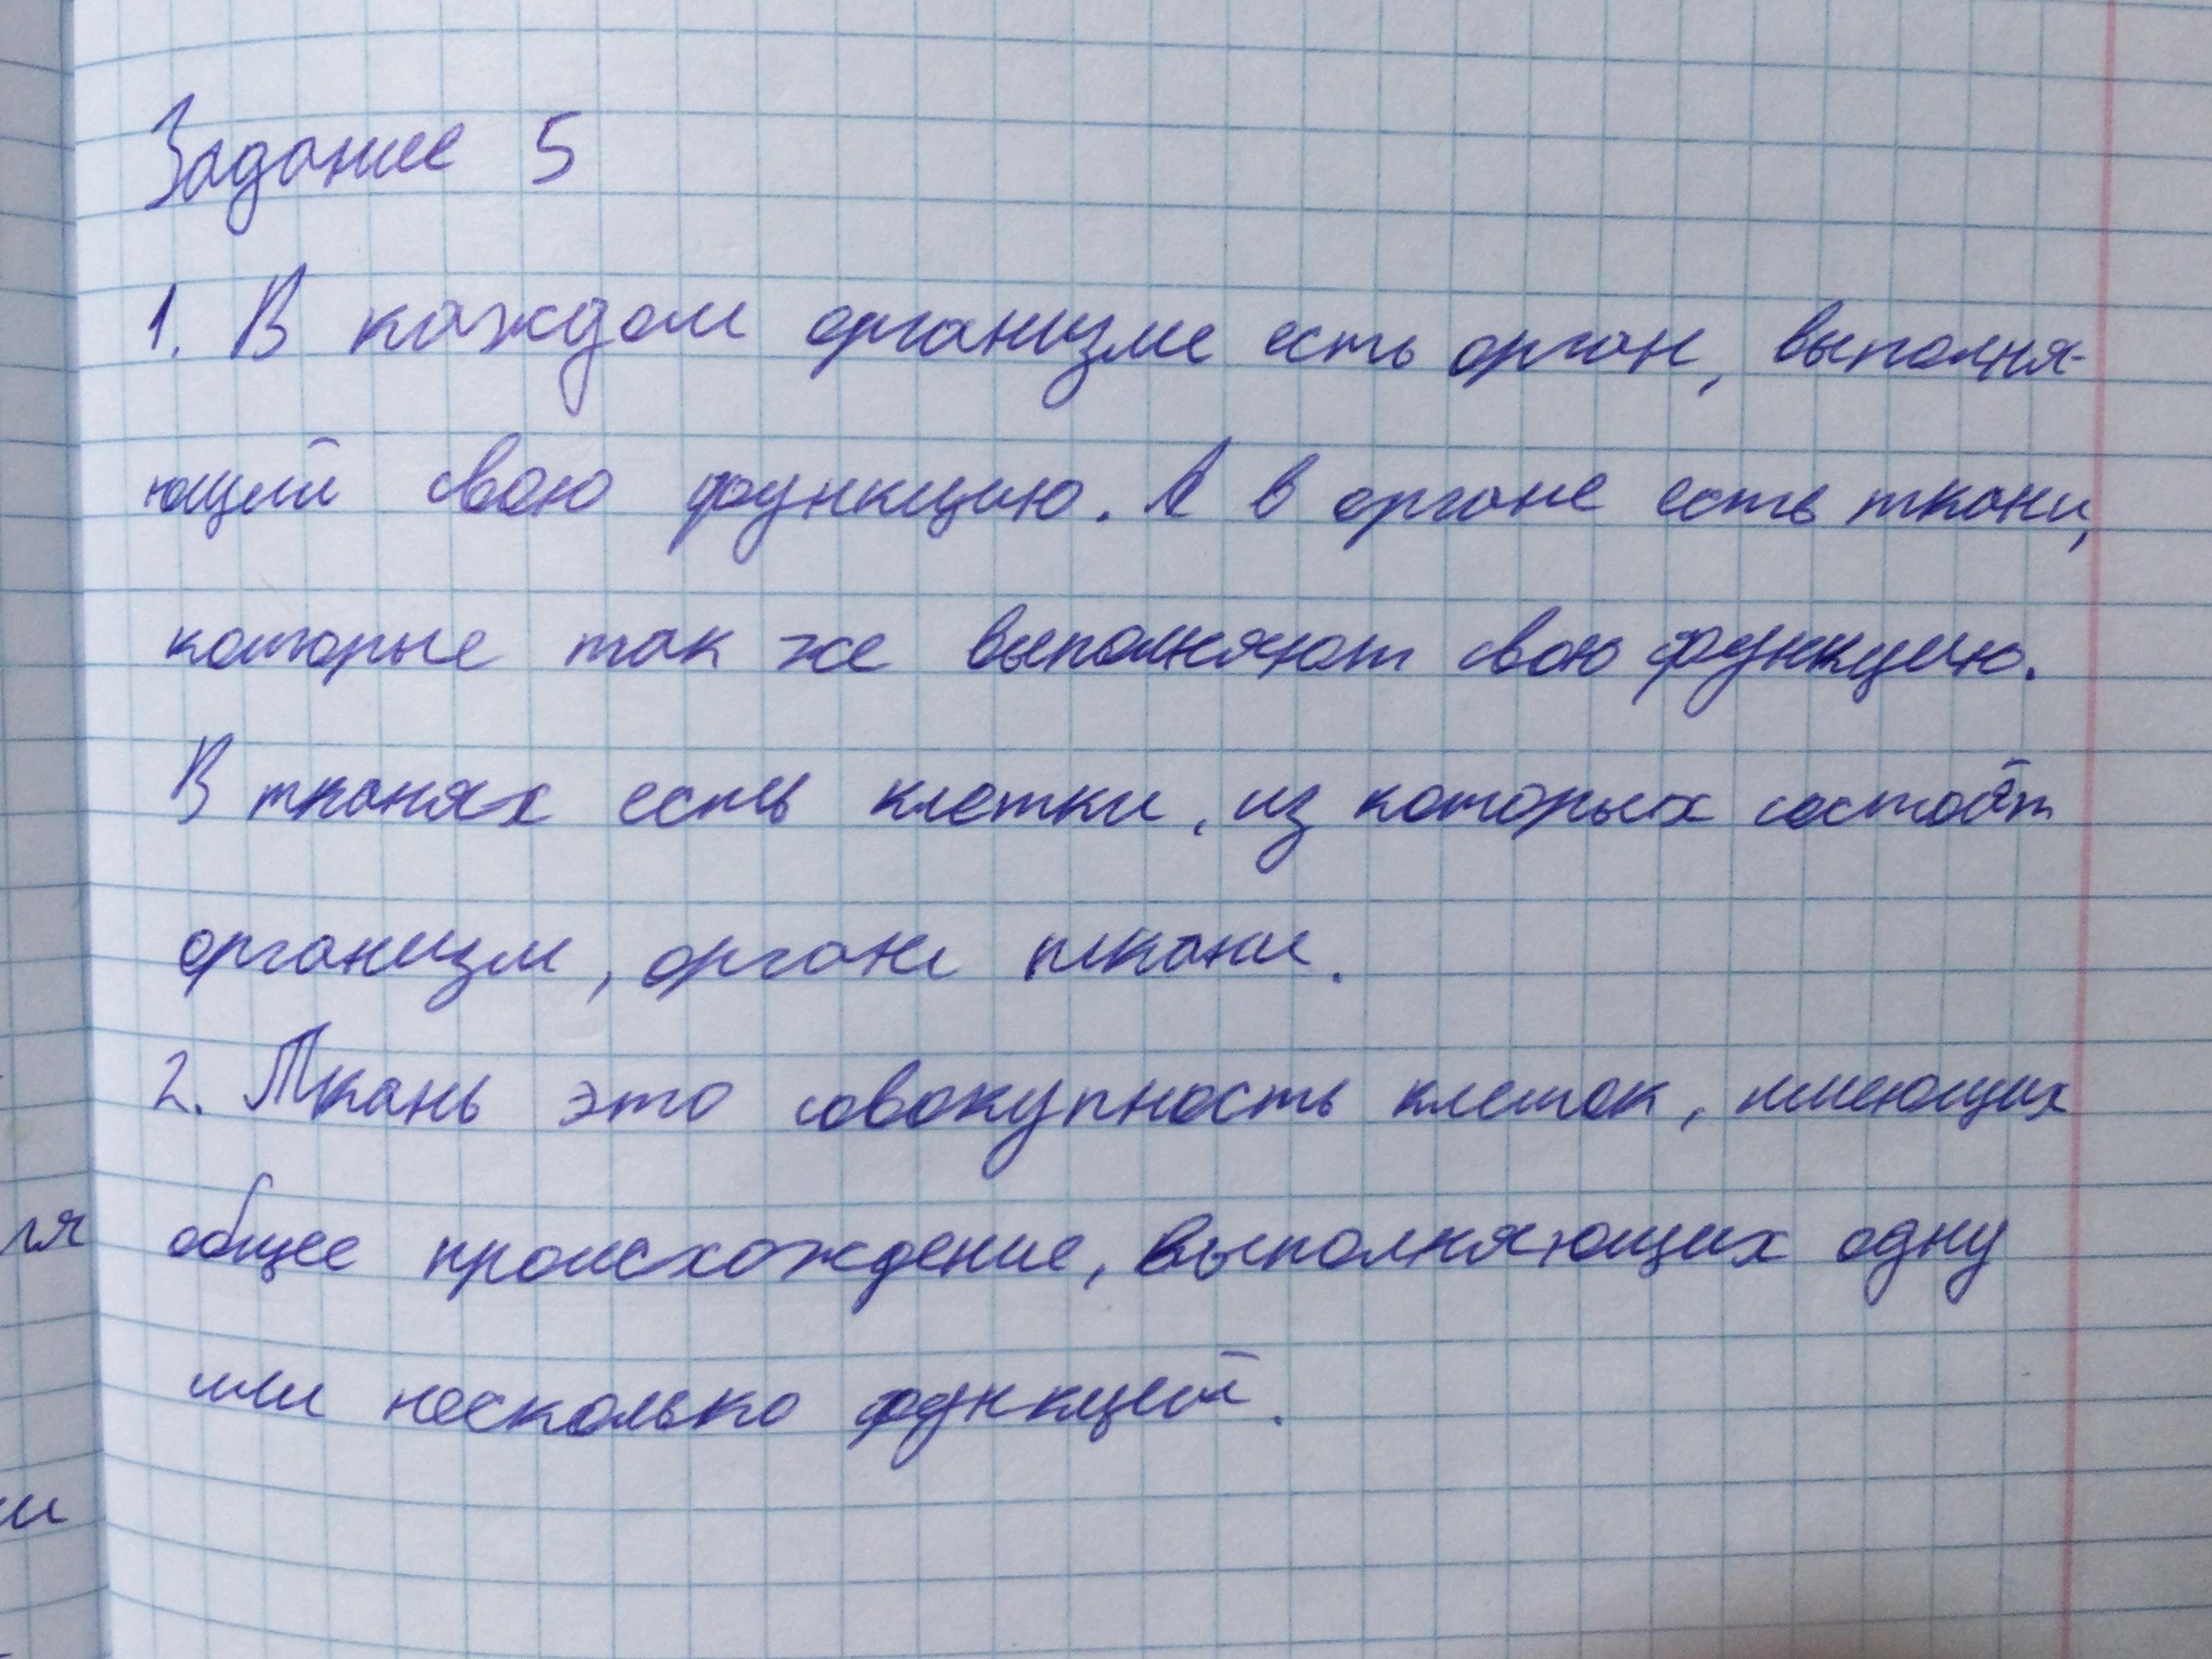 Задание 5
1. В каждом организме есть орган, выполня-
ющий свою функцию. А в органе есть ткани,
которые так же выполняют свою функцию.
В тканях есть клетки, из которых состоят
организм, орган ткани.
2. Ткань это совокупность клеток, имеющих
общее происхождение, выполняющих одну
или несколько функций.